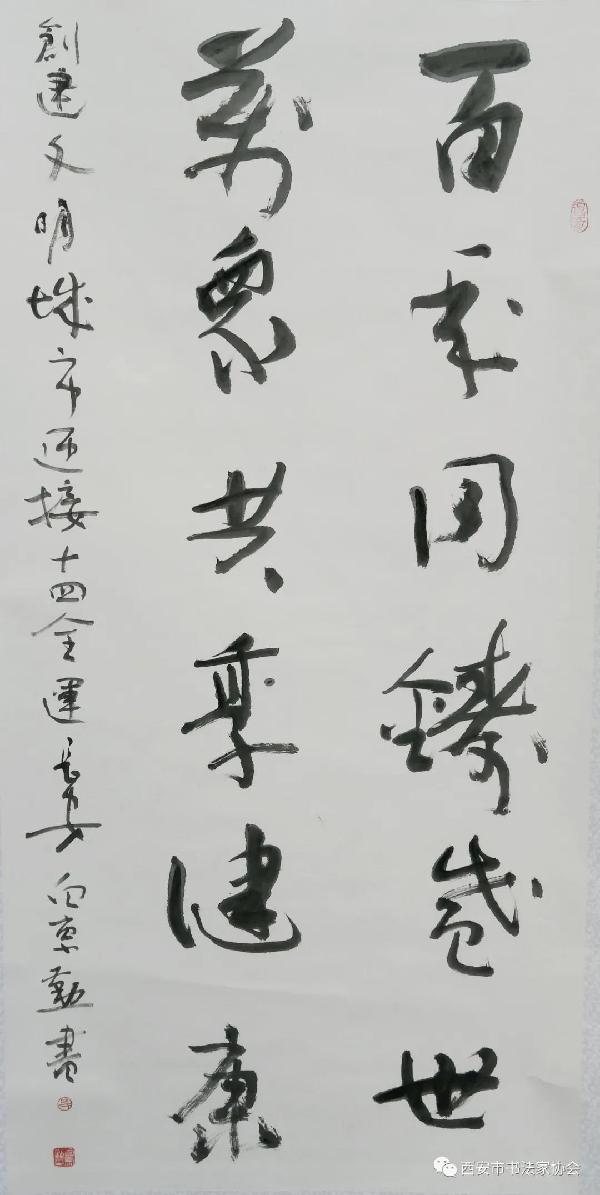 百年同鑄盛世
萬眾共享健康
創建文明城市迎接十四全運長安白京勤書
西安市书法家协会